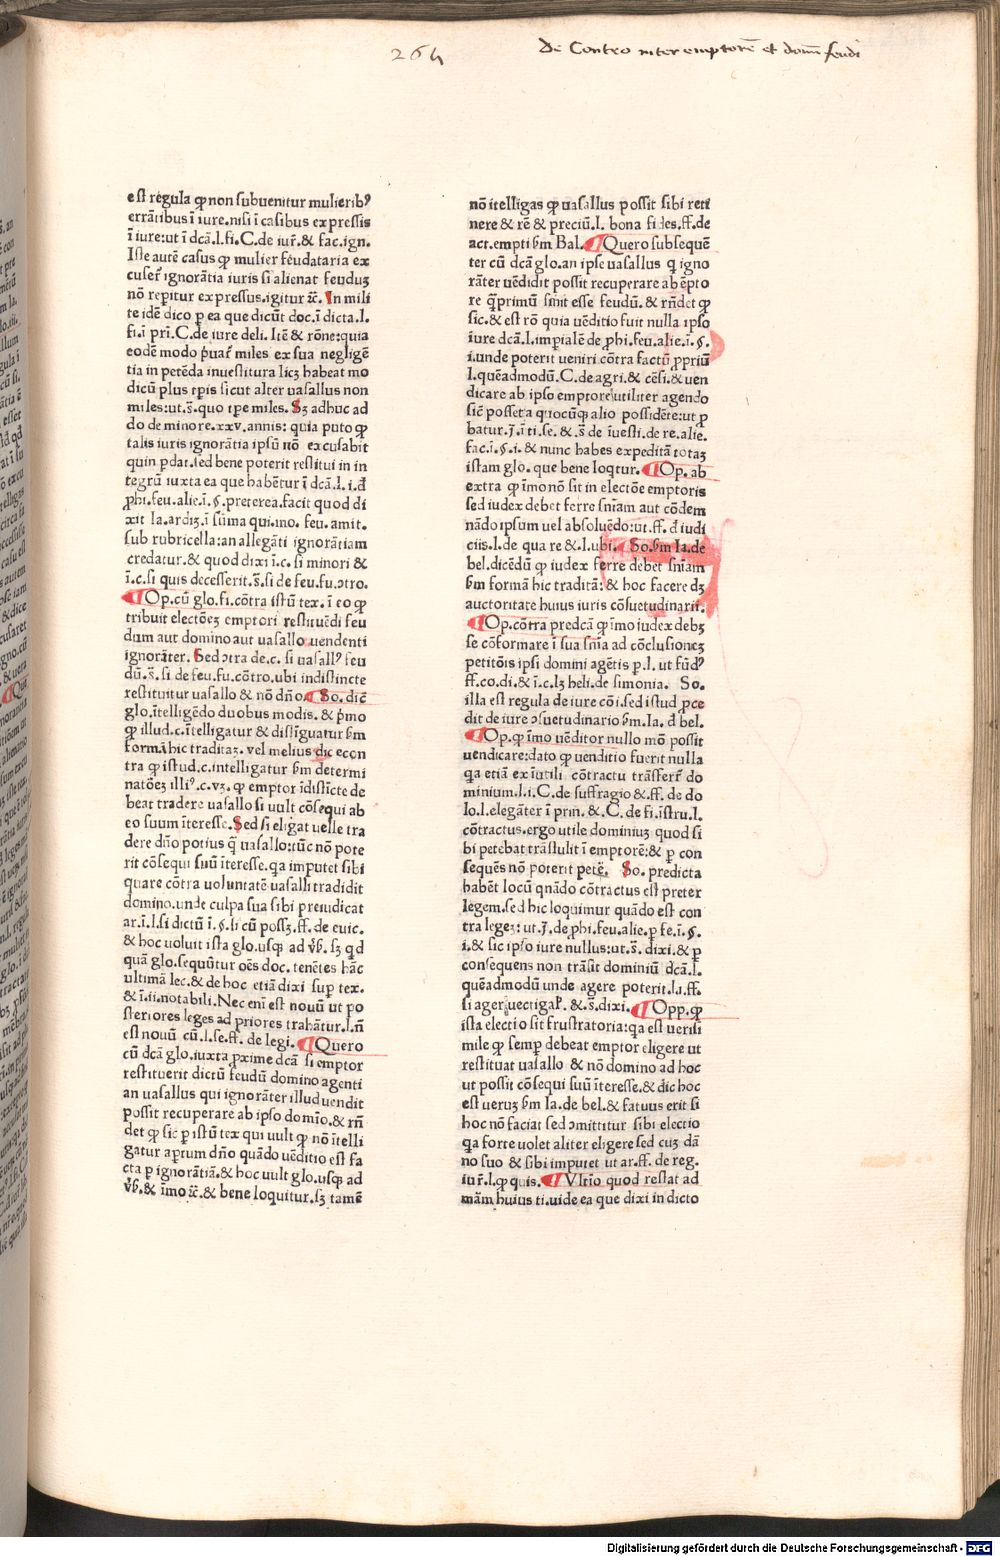 264
De Contro inter emptorē et domū feudi
est regula ꝙ non subuenitur mulieribꝰ
errātibus ī iure. nisi ī casibus expressis
ī iure: ut ī dcā. l. fi. C. de iur̄. & fac. ign.
Iste autē casus ꝙ mulier feudataria ex
cuset̄ ignorātia iuris si alienat feuduꝫ
nō reperitur expressus. igitur ⁊c̄. In mili
te idē dico ꝑ ea que dicūt doc. ī dicta. l.
fi. ī pri. C. de iure deli. Itē & rōne: quia
eodē modo priuat̄ miles ex sua negligē
tia in petēda inuestitura licꝫ habeat mo
dicū plus tꝑis sicut alter uasallus non
miles: ut. s̄. quo tꝑe miles. Sꝫ adhuc ad
do de minore. xxv. annis: quia puto ꝙ
talis iuris ignorātia ipsū nō excusabit
quin ꝑdat. sed bene poterit restitui in in
tegrū iuxta ea que habētur ī dcā. l. i. d̄
ꝓhi. feu. alie. ī. §. preterea. facit quod di
xit Ia. ardiꝫ. ī sūma qui. mo. feu. amit.
sub rubricella: an allegāti ignorātiam
credatur. & quod dixi ī. c. si minori &
ī. c. si quis decesserit. s̄. si de feu. fu. ↄtro.
¶ Op. cū glo. fi. cōtra istū tex. ī eo ꝙ
tribuit electōeꝫ emptori restituēdi feu
dum aut domino aut uasallo uendenti
ignorāter. Sed ↄtra de. c. si uasallꝰ feu
dū. s̄. si de feu. fu. cōtro. ubi indistincte
restituitur uasallo & nō dn̄o. ¶ So. dic̄
glo. ītelligēdo duobus modis. & pͥmo
ꝙ illud. c. ītelligatur & distīguatur ẜm
formā hic traditaꝫ. vel melius dic econ
tra ꝙ istud. c. intelligatur ẜm determi
natōeꝫ illiꝰ. c. vꝫ. ꝙ emptor īdistīcte de
beat tradere uasallo si uult cōsequi ab
eo suum īteresse. Sed si eligat uelle tra
dere dn̄o potius q̄ uasallo: tūc nō pote
rit cōsequi suū īteresse. qa imputet sibi
quare cōtra uoluntatē uasalli tradidit
domino. unde culpa sua sibi preiudicat
ar. ī. l. si dictū ī. §. si cū possꝫ. ff. de euic.
& hoc uoluit ista glo. usqꝫ ad v̄b. sꝫ qd
quā glo. sequūtur oēs doc. tenētes hāc
ultimā lec. & de hoc etiā dixi suꝑ tex.
& ī. ii. notabili. Nec enī est nouū ut po
steriores leges ad priores trahātur. l. n̄
est nouū cū. l. se. ff. de legi. ¶ Quero
cū dcā glo. iuxta ꝓxime dcā si emptor
restituerit dictū feudū domino agenti
an uasallus qui ignorāter illud uendit
possit recuperare ab ipso domīo. & rn̄
det ꝙ sic ꝑ istū tex qui uult ꝙ nō ītelli
gatur aꝑtum dn̄o quādo uēditio est fa
cta ꝑ ignorātiā. & hoc uult glo. usqꝫ ad
v̄b. & īmo ⁊c̄. & bene loquitur. sꝫ tamē
nō itelligas ꝙ uasallus possit sibi reti
nere & rē & preciū. l. bona fides. ff. de
act. empti ẜm Bal. ¶ Quero subsequē
ter cū dcā glo. an ipse uasallus q̄ igno
rāter uēdidit possit recuperare ab ēpto
re q̄ꝑrimū sciuit esse feudū. & rn̄det ꝙ
sic. & est rō quia uēditio fuit nulla ipso
iure dcā. l. imꝑialē de ꝓhi. feu. alie. ī. §.
i. unde poterit ueniri cōtra factū ꝓpriū
l. quēadmodū. C. de agri. & cēsi. & uen
dicare ab ipso emptore utiliter agendo
sic̄ posset a quocūqꝫ alio possidēte: ut ꝓ
batur. J. ī ti. se. & s̄ de īuesti. de re. alie.
fac. ī. §. i. & nunc habes expeditā totaꝫ
istam glo. que bene loqtur. ¶ Op. ab
extra ꝙ īmo nō sit in electōe emptoris
sed iudex debet ferre sn̄iam aut cōdem
nādo ipsum uel absoluēdo: ut. ff. d̄ iudi
ciis. l. de qua re & l. ubi. ¶ So. ẜm Ia. de
bel. dicēdū ꝙ iudex ferre debet sn̄iam
ẜm formā hic traditā: & hoc facere dꝫ
auctoritate huius iuris cōsuetudinarii.
¶ Op. cōtra predcā ꝙ īmo iudex debꝫ
se cōformare ī sua sn̄ia ad cōclusioneꝫ
petitōis ipsi domini agētis ꝑ. l. ut fūdꝰ
ff. co. di. & ī. c. lꝫ heli. de simonia. So.
illa est regula de iure cōi. sed istud ꝓce
dit de iure ↄsuetudinario ẜm. Ia. d̄ bel.
¶ Op. ꝙ īmo uēditor nullo mō possit
uendicare: dato ꝙ uenditio fuerit nulla
qa etiā ex īutili cōtractu trāsfert̄ do
minium. l. i. C. de suffragio & ff. de do
lo. l. elegāter ī prin. & C. de fi. īstru. l.
cōtractus. ergo utile dominiuꝫ quod si
bi petebat trāstulit ī emptorē: & ꝑ con
sequēs nō poterit petē. So. predicta
habēt locū qn̄ado cōtractus est preter
legem. sed hic loquimur quādo est con
tra legeꝫ: ut. J. de ꝓhi. feu. alie. ꝑ fe. ī. §.
i. & sic ipso iure nullus: ut. s̄. dixi. & ꝑ
consequens non trāsit dominiū dcā. l.
quēadmodū unde agere poterit. l. i. ff.
si ager uectigal̄. & s̄. dixi. ¶ Opp. ꝙ
ista electio sit frustratoria: qa est uerisi
mile ꝙ semꝑ debeat emptor eligere ut
restituat uasallo & nō domino ad hoc
ut possit cōsequi suū īteresse. & dic hoc
est ueruꝫ ẜm Ia. de bel. & fatuus erit si
hoc nō faciat sed ↄmittitur sibi electio
qa forte uolet aliter eligere sed cuꝫ dā
no suo & sibi imputet ut ar. ff. de reg.
iur̄. l. ꝙ quis. ¶ Vltīo quod restat ad
mām huius ti. uide ea que dixi in dicto
Digitalisierung gefördert durch die Deutsche Forschungsgemeinschaft - DFG